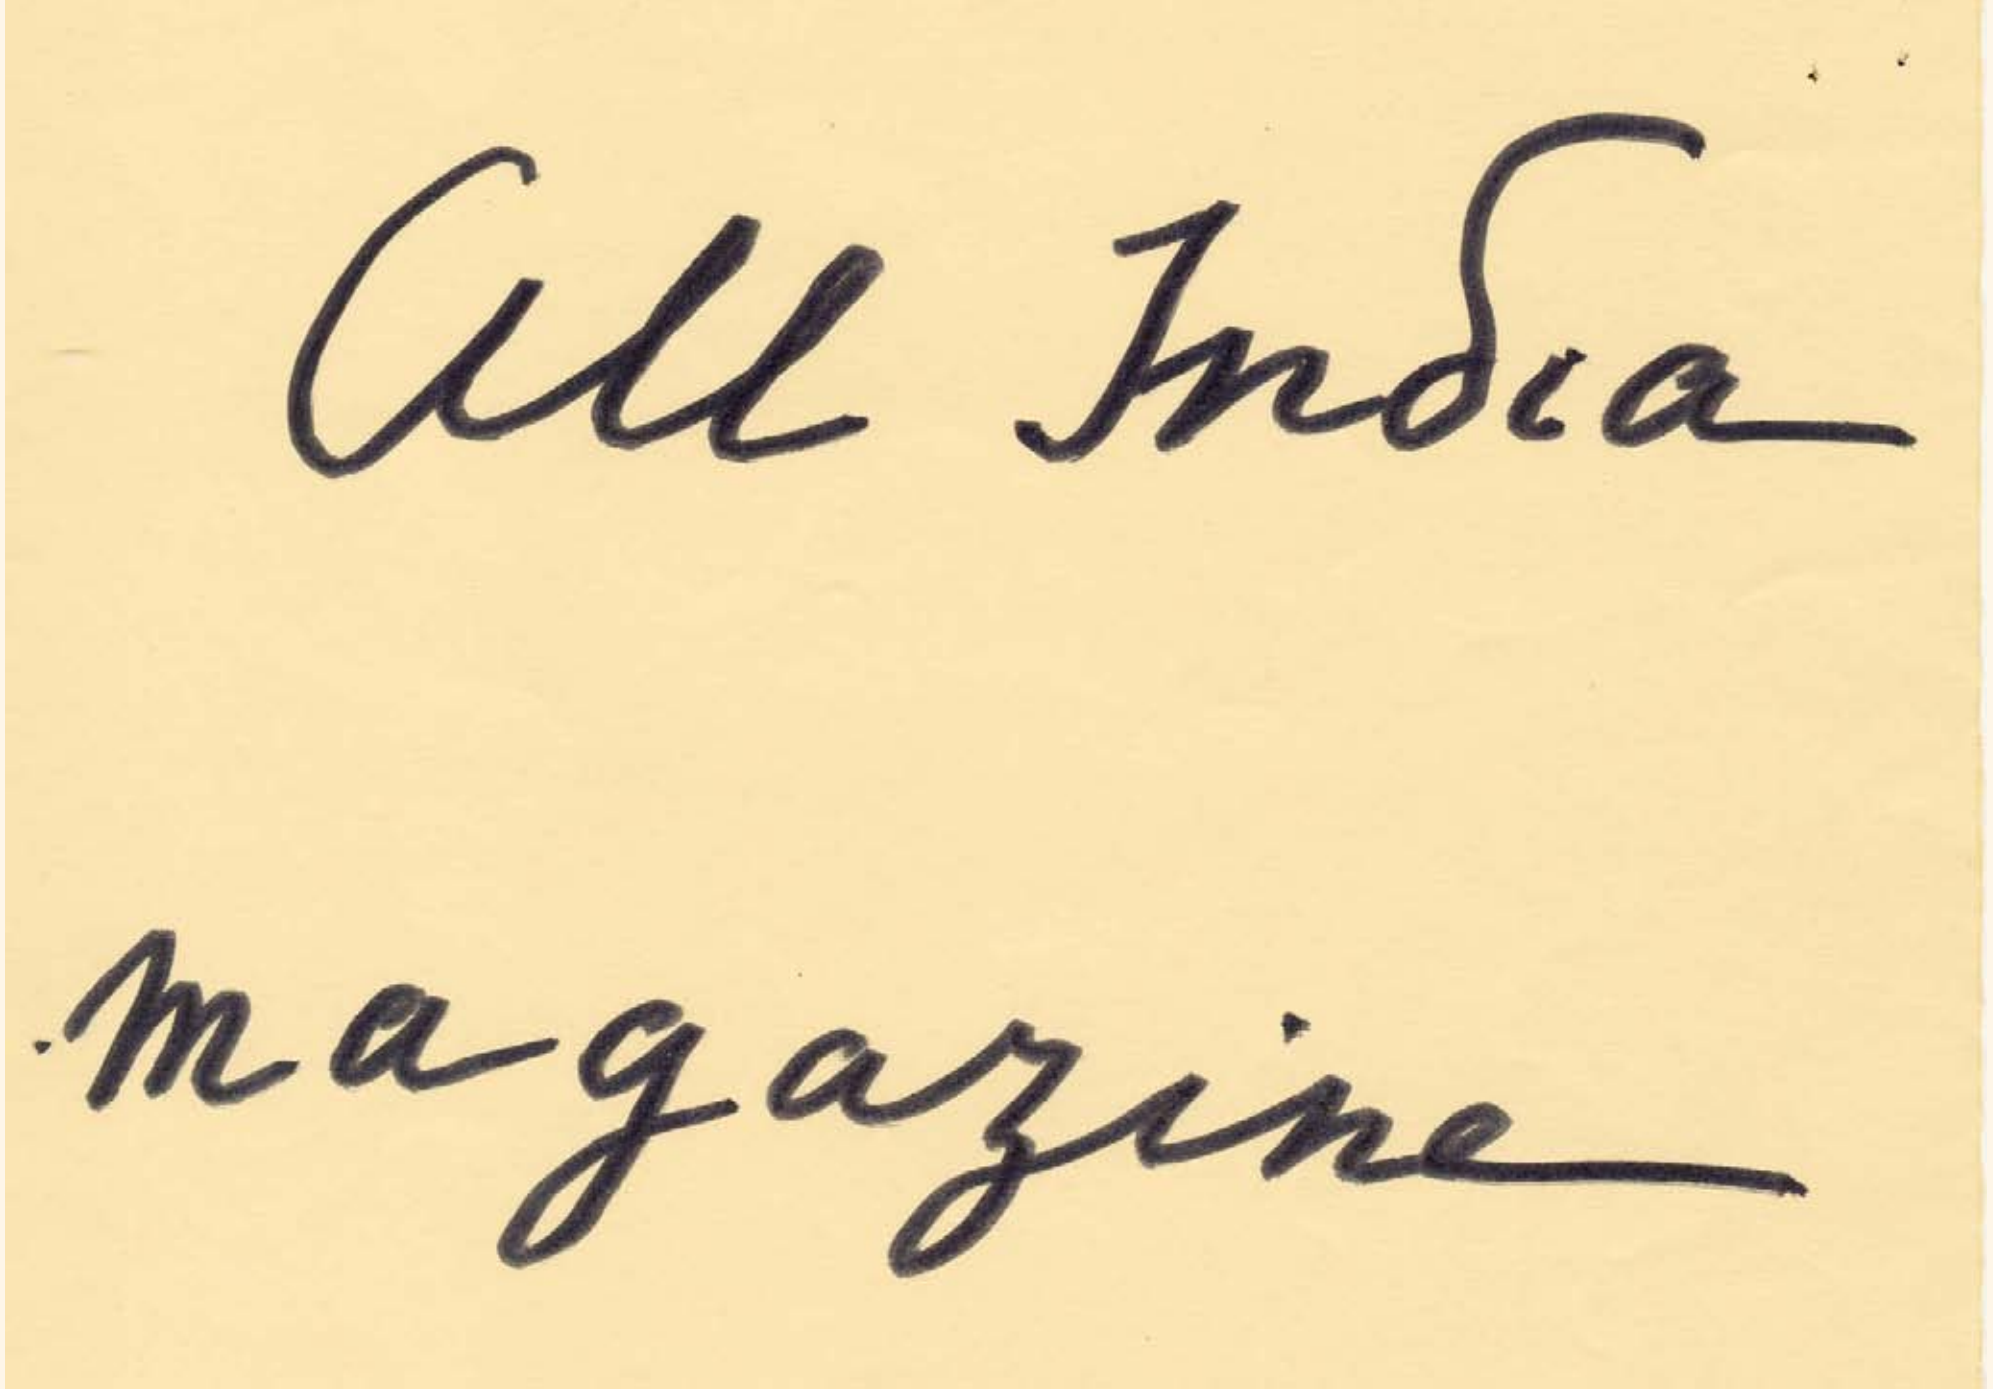 All India
magazine